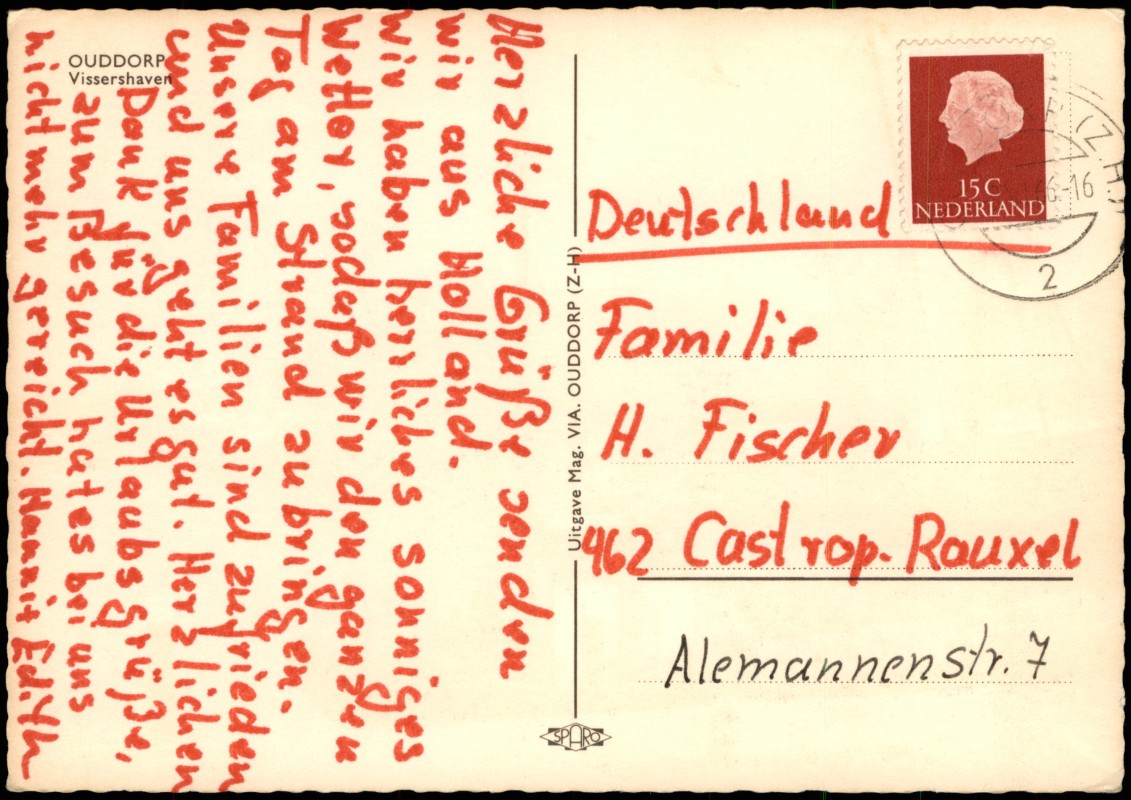 OUDDORP
Vissershaven
Herzliche Grüße senden
wir aus Holland.
Wir haben herrliches sonniges
Wetter, sodaß wir den ganzen
Tag am Strand zubringen.
Unsere Familien sind zufrieden
und uns geht es gut. Herzlichen
Dank für die Urlaubsgrüße,
zum Besuch hat es bei uns
nicht mehr gereicht.
Uitgave Mag. VIA. OUDDORP (Z-H)
SPARO
15 C
NEDERLAND
(Z.H.)
66-16
2
Deutschland
Familie
H. Fischer
462 Castrop-Rauxel
Alemannenstr. 7